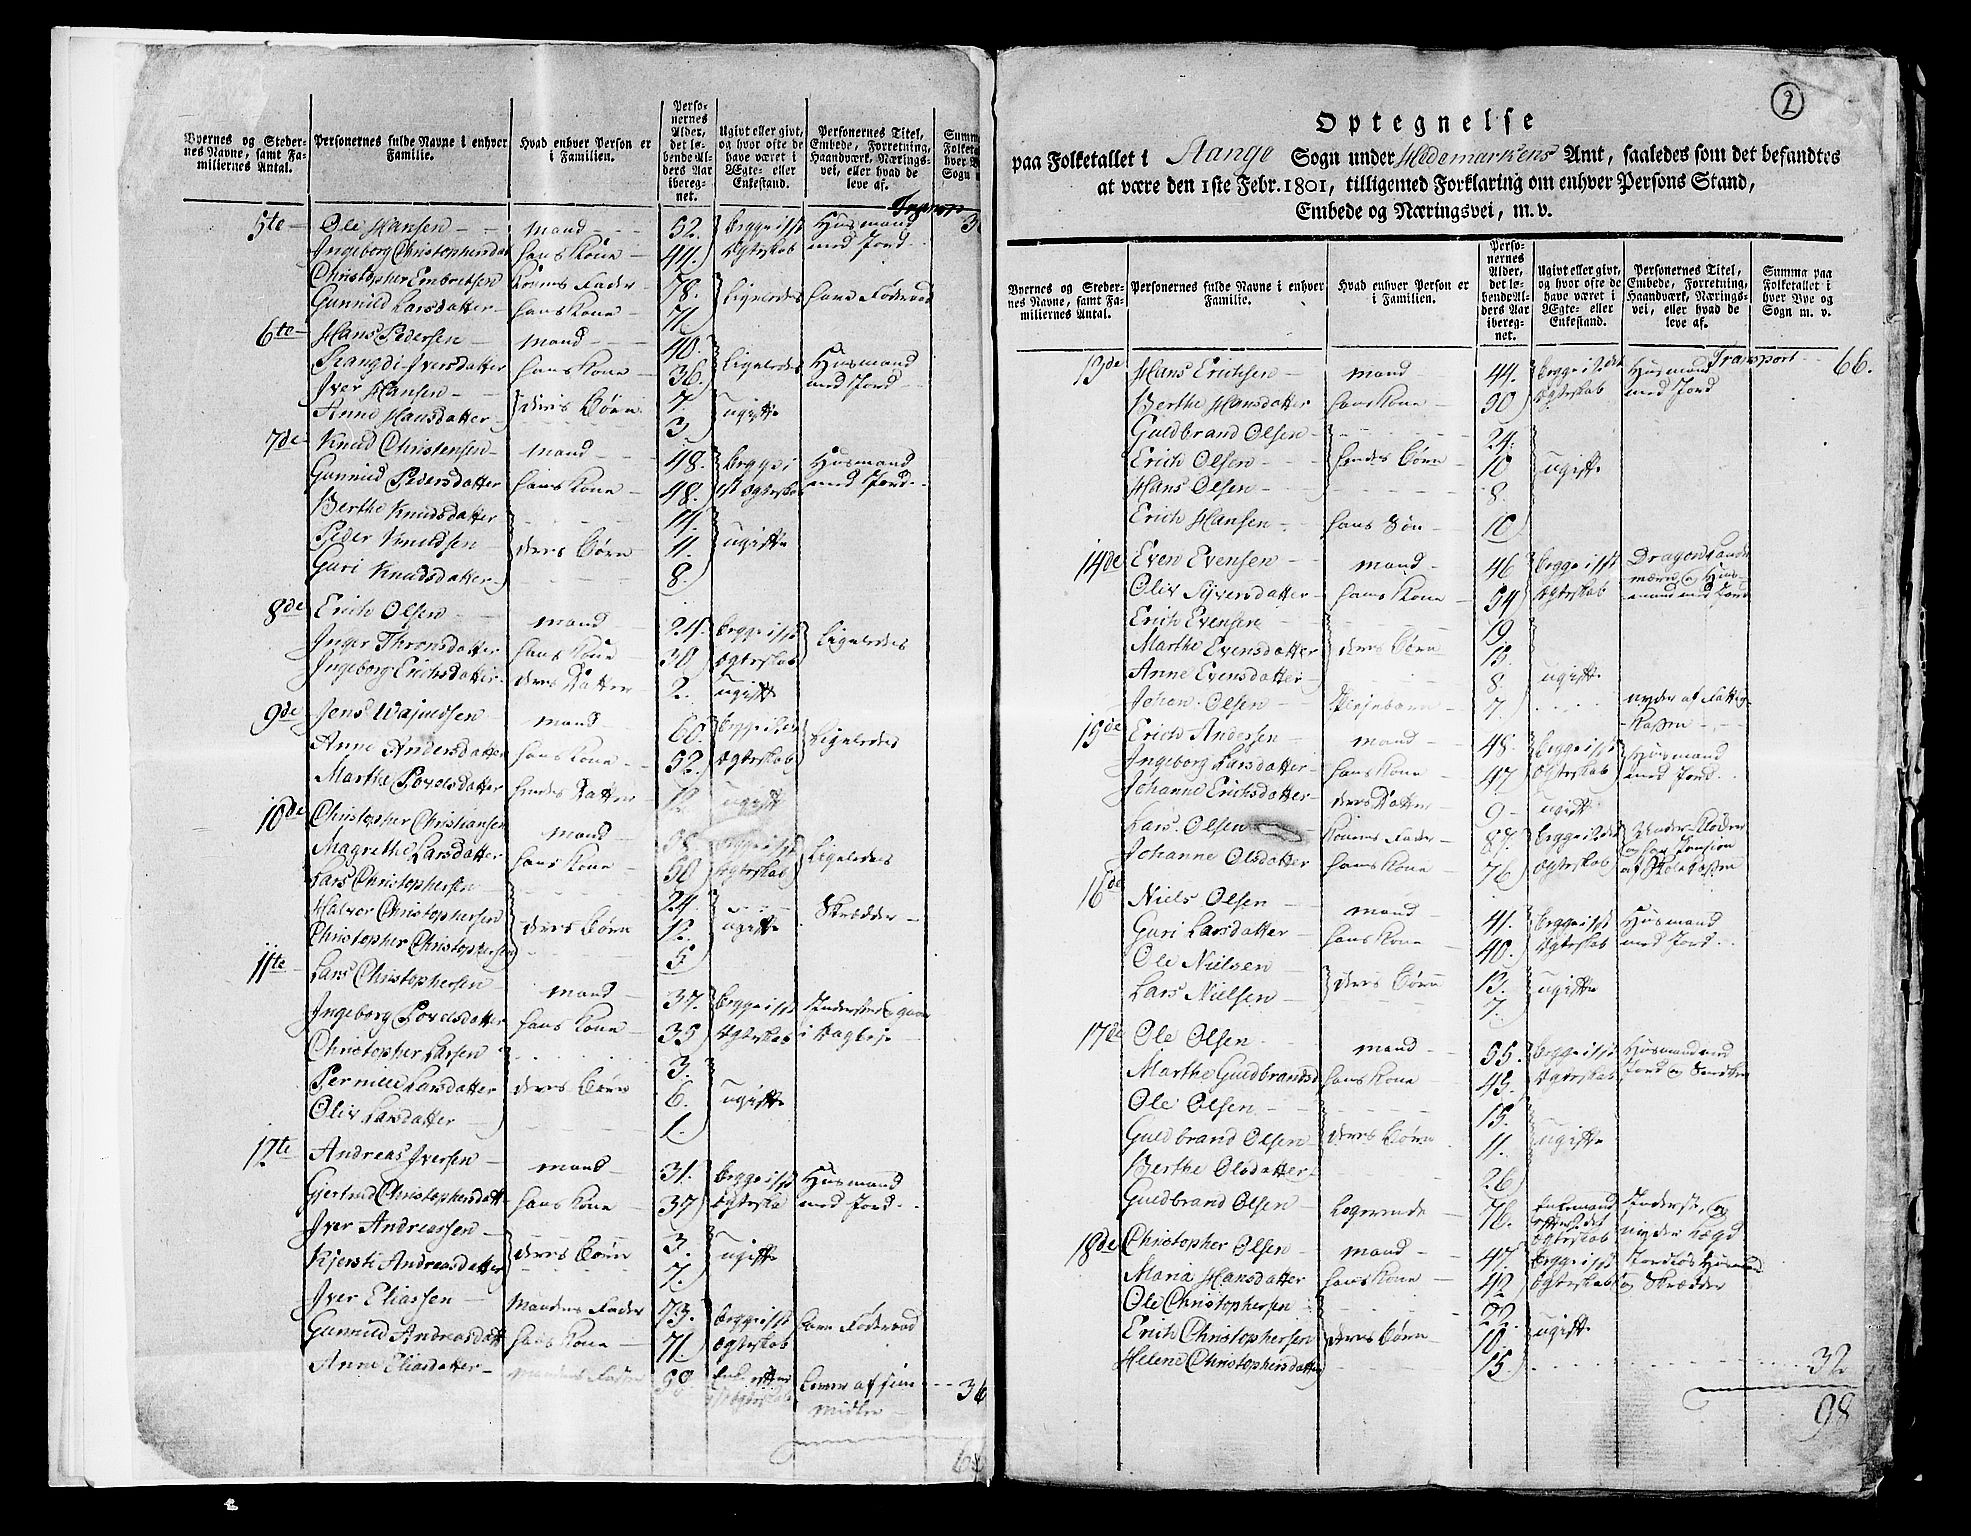 Byernes og Steder-
nes Navne, samt Fa-
miliernes Antal.
Personernes fulde Navne i enhver
Familie.
Hvad enhver Person er
i Familien.
Perso-
nernes
Alder,
det lø-
bende Al-
ders Aar
ibereg-
net.
Ugivt eller givt,
og hvor ofte de
have været i
Ægte- eller
Enkestand.
Personernes Titel,
Embede, Forretning,
Haandværk, Nærings-
vei, eller hvad de
leve af.
Summa
Folketa
hver B
Sogn
5te Ole Hansen mand 52. begge i 1ste Husmand
Ingeborg Christophersdat hans Kone 44. Ægteskab med Jord
Christopher Embretsen Konens Fader 78.
Gunnild Larsdatter hans Kone 71. Ligeledes
6te Hans Pedersen mand 40.
Rangdi Iversdatter hans Kone 36. Ligeledes Husmand
Iver Hansen 7. med Jord
Anne Hansdatter deres Børn 3. ugifte
7de Knud Christensen mand 48. begge i Husmand
Gunnild Pedersdatter hans Kone 48. 1st Ægteskab med Jord
Berthe Knudsdatter 14.
Peder Knudsen deres Børn 11. ugifte
Guri Knudsdatter 8.
8de Erich Olsen mand 24. begge i 1ste
Inger Thronsdatter hans Kone 30 Ægteskab Ligeledes
Ingeborg Erichsdatter deres Datter 2. ugift
9de Jens mand 60.
Anne Andersdatter hans Kone 52. Ægteskab Ligeledes
Marthe Povelsdatter hendes Datter 12 ugift
10de Christopher Christiansen mand
Magrethe Larsdatter hans Kone 50 Ægteskab Ligeledes
Lars Christophersen 24. Skrædder
Halvor Christophersen deres Børn 12. ugifte
Christopher Christophersen 5
11te Lars Christophersen mand 37. begge i 1ste
Ingeborg Povelsdatter hans Kone 35 Ægteskab
Christopher Larsen 3.
Pernille Larsdatter deres Børn 6. ugifte
Oliv Larsdatter 1.
12te Andreas Iversen mand 31. begge i 1ste Husmand
Gjertrud Christophersdatt hans Kone 37 Ægteska med Jord
Iver Andreassen 3. ugifte
Kjersti Andreasdatter deres Børn 7.
Iver Eliassen Mandens Fader 73. begge i 1ste
Gunnild Andreasdatt hans Kone 71. Ægteskab
Anne Eliasdatter lever af sine 36
midler
2
Optegnelse
paa Folketallet i Stange Sogn under Hedemarkens Amt, saaledes som det befandtes
at være den 1ste Febr. 1801, tilligemed Forklaring om enhver Persons Stand,
Embede og Næringsvei, m. v.
Byernes og Steder-
nes Navne, samt Fa-
miliernes Antal.
Personernes fulde Navne i enhver
Familie.
Hvad enhver Person er
i Familien.
Perso-
nernes
Alder,
det lø-
bende Al-
ders Aar
ibereg-
net.
Ugivt eller givt,
og hvor ofte de
have været i
Ægte- eller
Enkestand.
Personernes Titel,
Embede, Forretning,
Haandværk, Nærings-
vei, eller hvad de
leve af.
Summa paa
Folketallet i
hver Bye og
Sogn m. v.
Transport 66.
13de Hans Erichsen mand 44. begge i 2det Husmand
Berthe Hansdatter hans Kone 50 Ægteskab med Jord
Guldbrand Olsen 24.
Erich Olsen hendes Børn 10 ugifte
Hans Olsen 8.
Erich Hansen hans Søn 10
14de Even Evensen mand 46 begge i 1ste Dragon
Oliv Syversdatter hans Kone 54 Ægteskab mand med Jord
Erich Evensen 19.
Marthe Evensdatter deres Børn 13.
Anne Evensdatter 8 ugifte
Johan Olsen Pleiebarn 7. nyder af Fattig-
Kassen
15de Erich Andersen mand 48. begge i 1ste Husmand
Ingeborg Larsdatter hans Kone 47 Ægteskab med Jord
Johanne Erichsdatter deres Datter 9 ugift
Lars Olsen Konens Fader 87. begge i 2det
Johanne Olsdatter hans Kone 76 Ægteskab
16de Niels Olsen mand 41. begge i 1ste Husmand
Guri Larsdatter hans Kone 40. Ægteskab med Jord
Ole Nielsen 13.
Lars Nielsen deres Børn 7. ugifte
17de Ole Olsen mand 55. begge i 1ste Husmand med
Marthe Guldbrandsd hans Kone 43. Ægteskab Jord og
Ole Olsen 15.
Guldbrand Olsen deres Børn 11. ugifte
Berthe Olsdatter 26
Guldbrand Olsen Logerende 76. Enkemand
efter 2det
Ægteskab nyder Lægd
18de Christopher Olsen mand 47. begge i 1ste Jordløs Husmand
Maria Hansdatter hans Kone 42 Ægteskab og Skrædder
Ole Christophersen 22.
Erich Christophersen deres Børn 10 ugifte
Helene Christophersdatter 15. 32
98